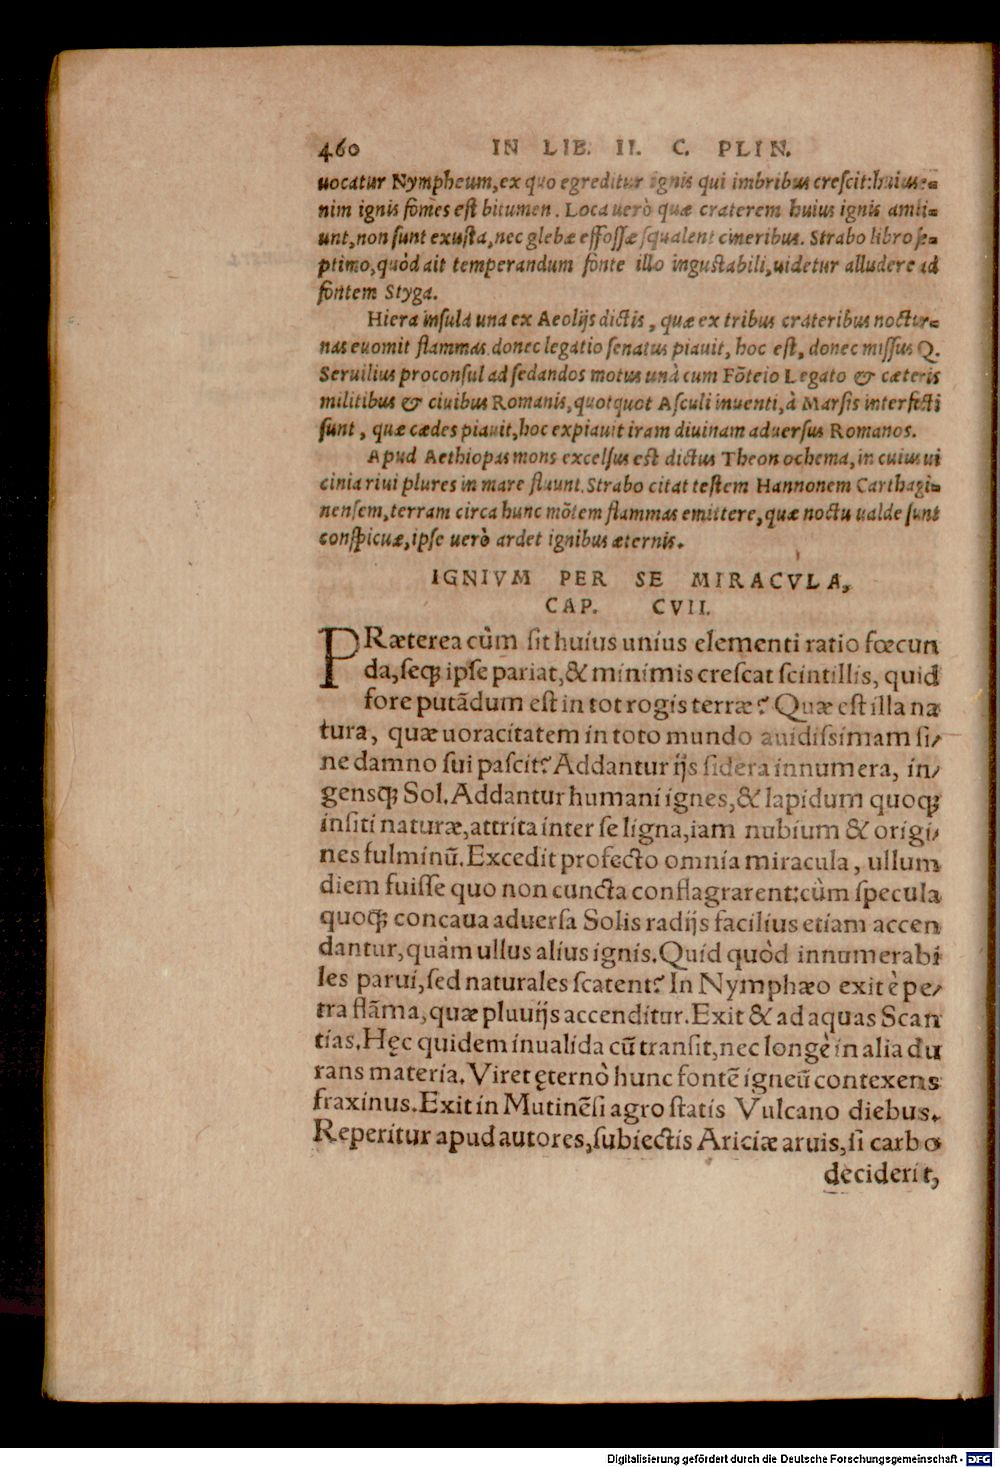 460 IN LIB. II. C. PLIN.
uocatur Nympheum, ex quo egreditur ignis qui imbribus crescit: huius e-
nim ignis fomes est bitumen. Loca uerò quæ craterem huius ignis ambi-
unt, non sunt exusta, nec glebæ effossæ squalent cineribus. Strabo libro se-
ptimo, quòd ait temperandum fonte illo ingustabili, uidetur alludere ad
fontem Styga.
Hiera insula una ex Aeolijs dictis, quæ ex tribus crateribus noctur-
nas euomit flammas. donec legatio senatus piauit, hoc est, donec missus Q.
Seruilius proconsul ad sedandos motus unà cum Fõteio Legato & cæteris
militibus & ciuibus Romanis, quotquot Asculi inuenti, à Marsis interfecti
sunt, quæ cædes piauit, hoc expiauit iram diuinam aduersus Romanos.
Apud Aethiopas mons excelsus est dictus Theon ochema, in cuius ui
cinia riui plures in mare fluunt. Strabo citat testem Hannonem Carthagi-
nensem, terram circa hunc mõtem flammas emittere, quæ noctu ualde sunt
conspicuæ, ipse uerò ardet ignibus æternis.
IGNIVM PER SE MIRACVLA,
CAP. CVII.
PRæterea cùm sit huius unius elementi ratio fœcun
da, seq; ipse pariat, & minimis crescat scintillis, quid
fore putãdum est in tot rogis terræ? Quæ est illa na
tura, quæ uoracitatem in toto mundo auidissimam si/
ne damno sui pascit? Addantur ijs sidera innumera, in/
gensq; Sol. Addantur humani ignes, & lapidum quoq;
insiti naturæ, attrita inter se ligna, iam nubium & origi/
nes fulminũ. Excedit profecto omnia miracula, ullum
diem fuisse quo non cuncta conflagrarent: cùm specula
quoq; concaua aduersa Solis radijs facilius etiam accen
dantur, quàm ullus alius ignis. Quid quòd innumerabi
les parui, sed naturales scatent? In Nymphæo exit è pe/
tra flãma, quæ pluuijs accenditur. Exit & ad aquas Scan
tias. Hęc quidem inualida cũ transit, nec longè in alia du
rans materia. Viret ęternò hunc fontẽ igneũ contexens
fraxinus. Exit in Mutinẽsi agro statis Vulcano diebus.
Reperitur apud autores, subiectis Ariciæ aruis, si carbo
deciderit,
Digitalisierung gefördert durch die Deutsche Forschungsgemeinschaft - DFG